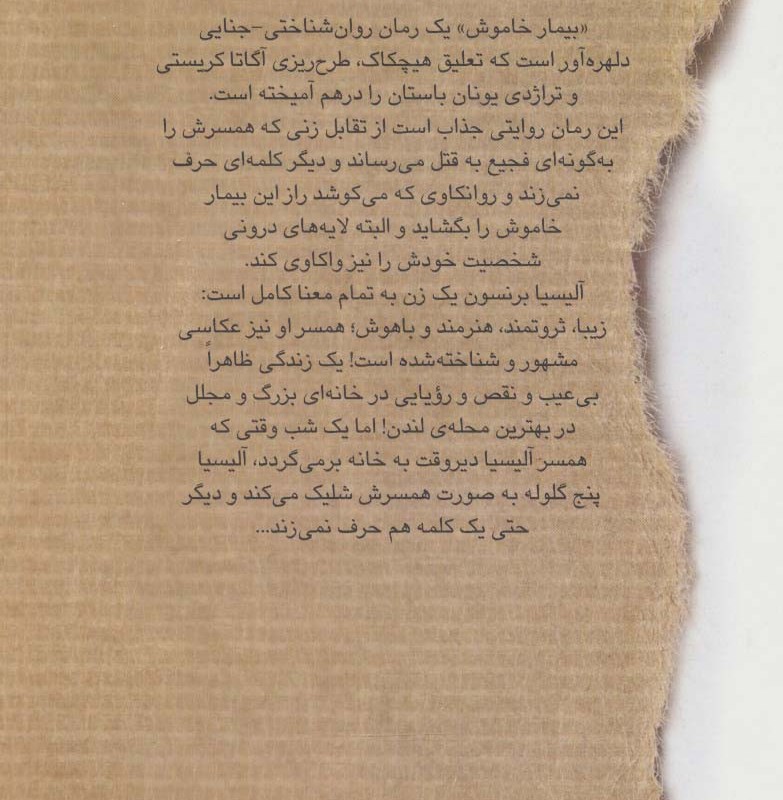 «بیمار خاموش» یک رمان روان‌شناختی-جنایی
دلهره‌آور است که تعلیق هیچکاک، طرح‌ریزی آگاتا کریستی
و تراژدی یونان باستان را درهم آمیخته است.
این رمان روایتی جذاب است از تقابل زنی که همسرش را
به‌گونه‌ای فجیع به قتل می‌رساند و دیگر کلمه‌ای حرف
نمی‌زند و روانکاوی که می‌کوشد راز این بیمار
خاموش را بگشاید و البته لایه‌های درونی
شخصیت خودش را نیز واکاوی کند.
آلیسیا برنسون یک زن به تمام معنا کامل است:
زیبا، ثروتمند، هنرمند و باهوش؛ همسر او نیز عکاسی
مشهور و شناخته‌شده است! یک زندگی ظاهراً
بی‌عیب و نقص و رؤیایی در خانه‌ای بزرگ و مجلل
در بهترین محله‌ی لندن! اما یک شب وقتی که
همسر آلیسیا دیروقت به خانه برمی‌گردد، آلیسیا
پنج گلوله به صورت همسرش شلیک می‌کند و دیگر
حتی یک کلمه هم حرف نمی‌زند...